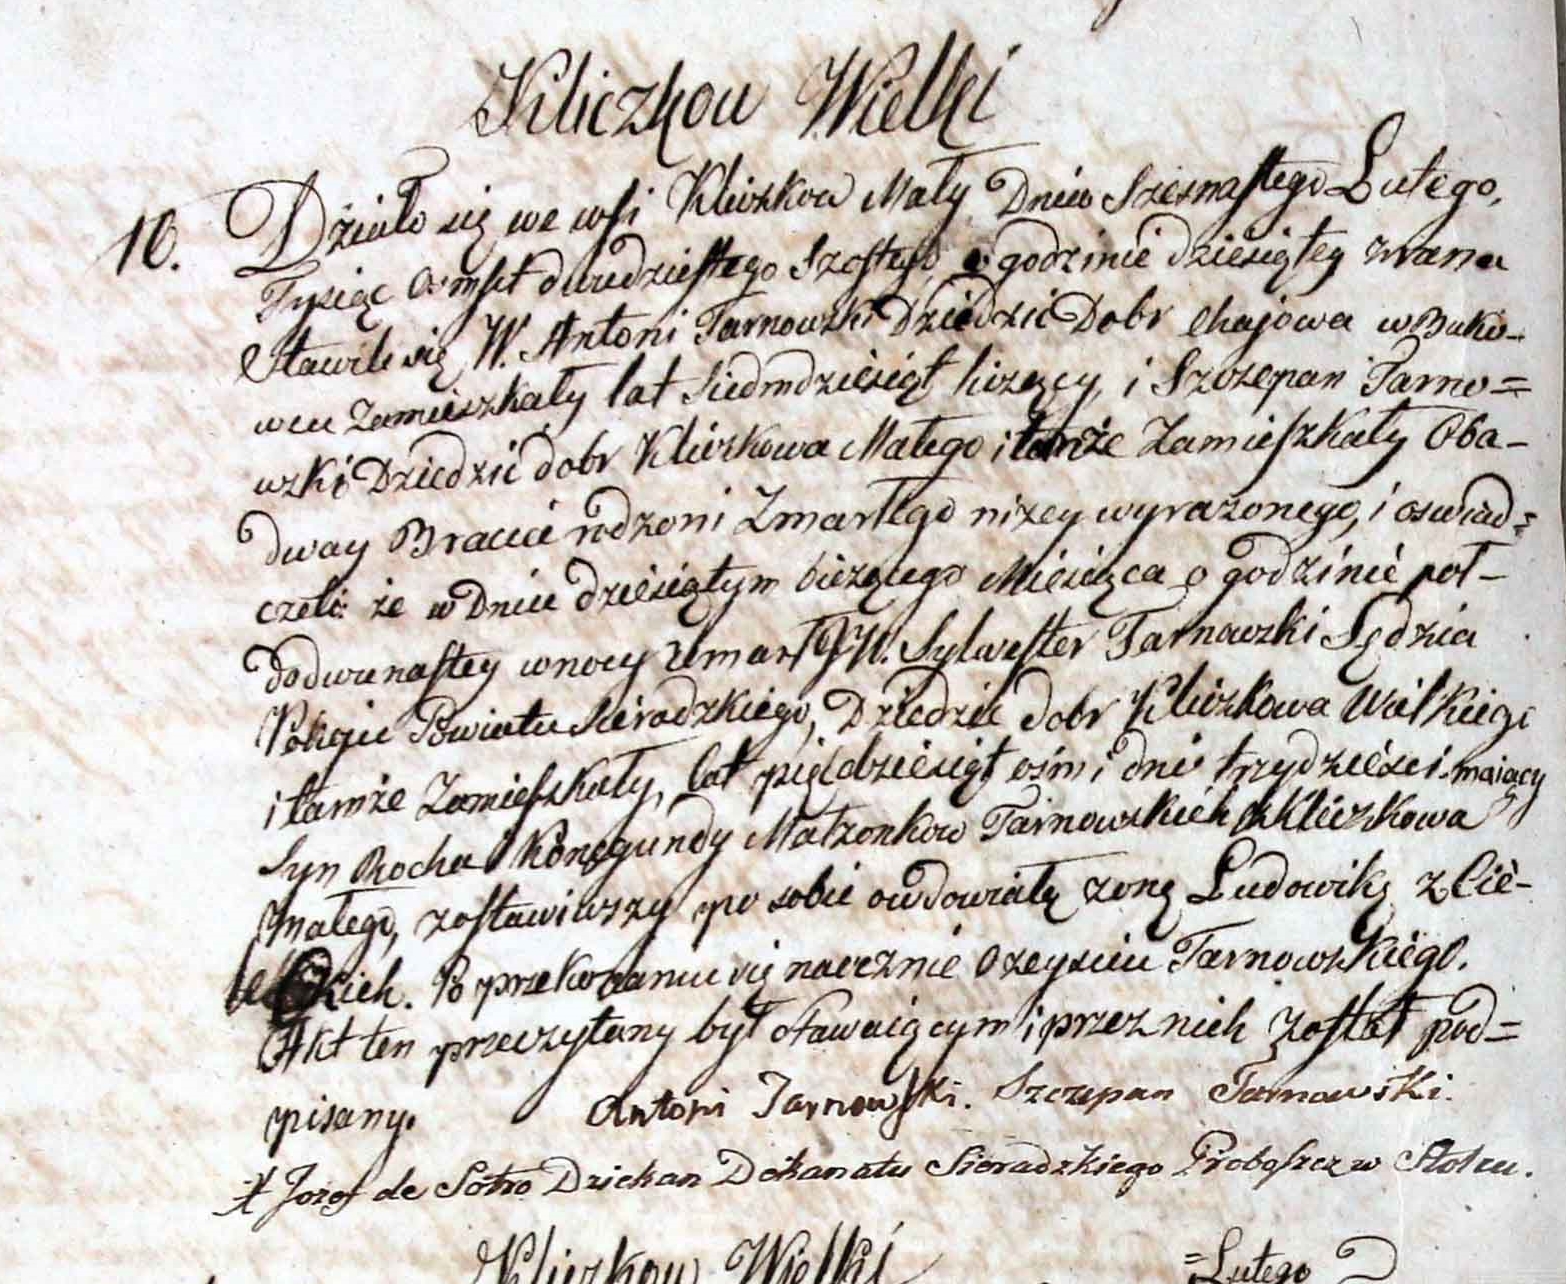 Kliczkow Wielki
10. Działo się we wsi Kliczkow Mały Dnia Szesnastego Lutego,
Tysiąc Osmset dwudziestego Szostego o godzinie dziesiątey zrana
Stawili się W. Antoni Tarnowski Dziedzic Dobr Chajewa w Buko-
wcu Zamieszkały lat siedmdziesiąt liczący, i Szczepan Tarno=
wski Dziedzic dobr Kliczkowa Małego i tamże Zamieszkały Oba-
dway Bracia rodzoni Zmarłego niżey wyrażonego, i oswiad=
czeli: że w Dniu dziesiątym bieżącego Miesiąca o godzinie poł-
dodwunastey wnocy Umarł W. Sylwester Tarnowski Sędzia
Pokoju Powiatu Sieradzkiego, Dziedzic dobr Kliczkowa Wielkiego
i tamże Zamieszkały, lat pięćdziesiąt ośm i dni trzydzieści maiący
Syn Rocha i Konegundy Małżonkow Tarnowskich z Kliczkowa
Małego, zostawiwszy po sobie owdowiałą żonę Ludowikę z Cie-
leckich. Po przekonaniu się naocznie Ozeysciu Tarnowskiego.
Akt ten przeczytany był stawaiącym i przez nich został pod=
pisany. Antoni Tarnowski. Szczepan Tarnowski.
X Jozef de Sotro Dziekan Dekanatu Sieradzkiego Proboszcz w Stoku.
Kliczkow Wielki =Lutego